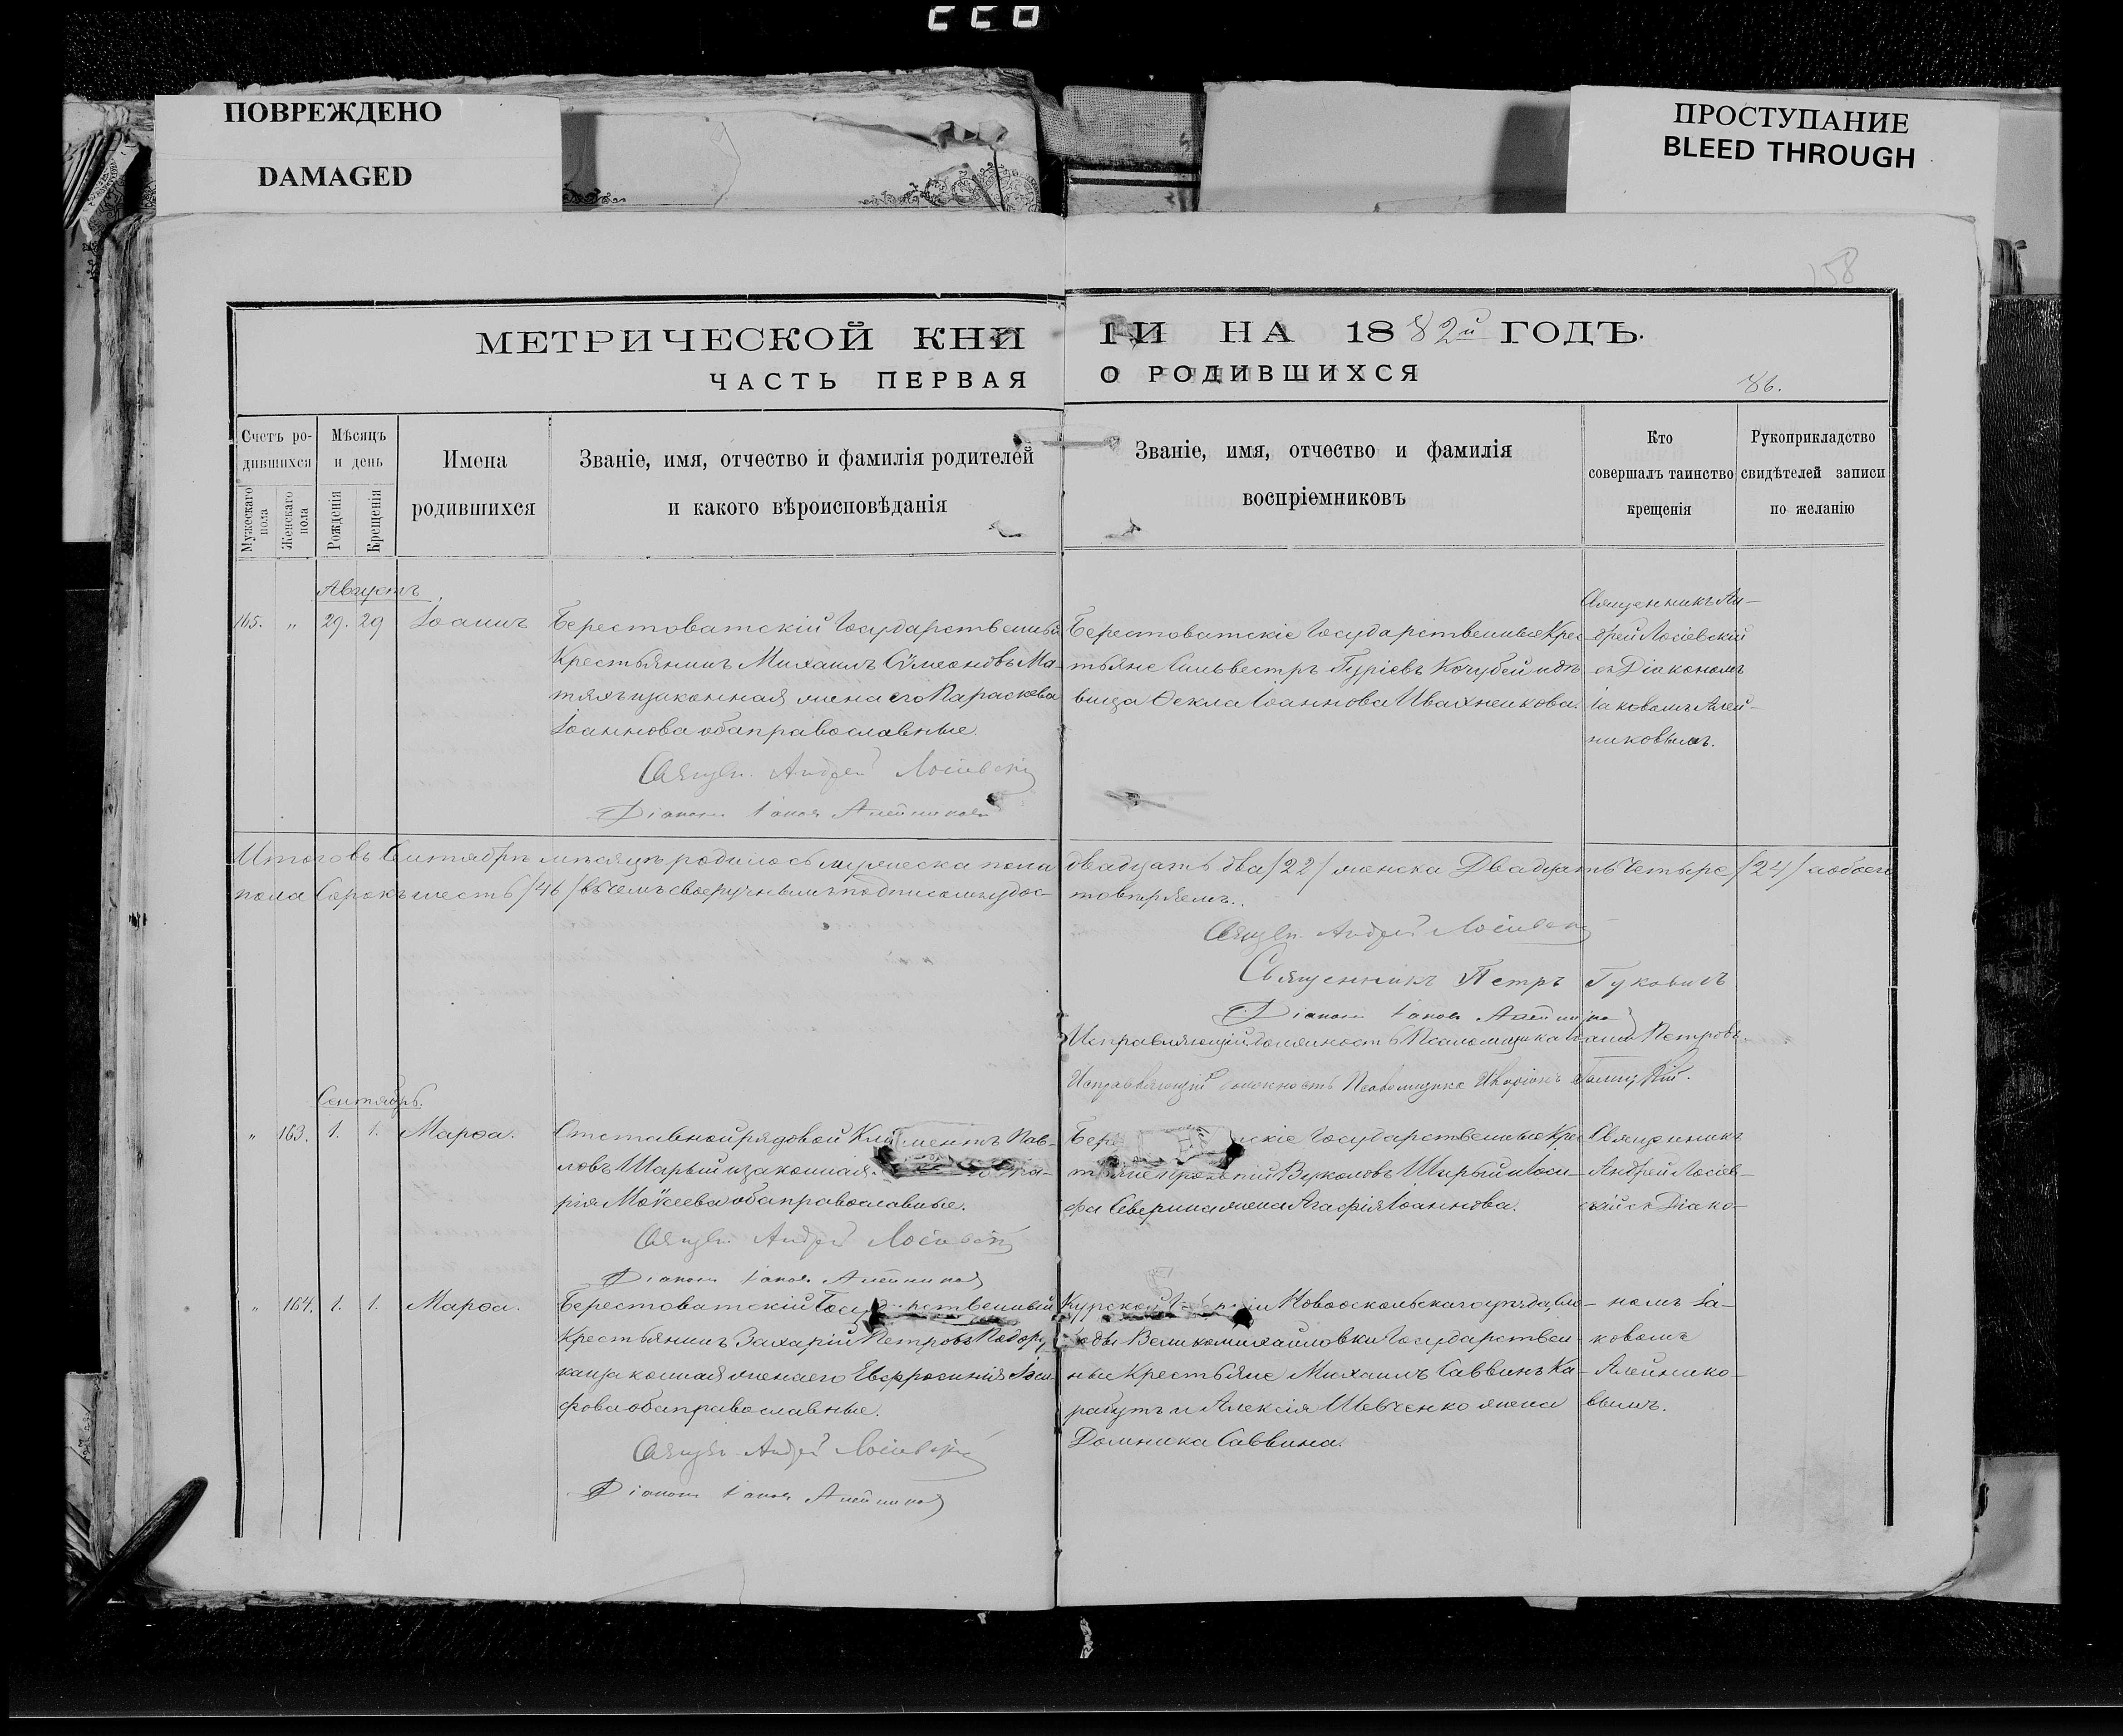 ПОВРЕЖДЕНО
DAMAGED
ПРОСТУПАНИЕ
BLEED THROUGH
158
МЕТРИЧЕСКОЙ КНИ ГИ НА 1882й ГОДЪ.
ЧАСТЬ ПЕРВАЯ О РОДИВШИХСЯ
86.
Счетъ ро-
дившихся
Мужескаго пола
Женскаго пола
Мѣсяцъ
и день
Рожденія
Крещенія
Имена
родившихся
Званіе, имя, отчество и фамилія родителей
и какого вѣроисповѣданія
Званіе, имя, отчество и фамилія
воспріемниковъ
Кто
совершалъ таинство
крещенія
Рукоприкладство
свидѣтелей записи
по желанію
Августъ
165. " 29. 29 Іоаннъ
Берестоватскій Государственный
Крестьянинъ Михаилъ Сѵмеоновъ
законная жена его Параскева
Іоаннова оба православные.
Священ. Андрей Лосіевскій
Діаконъ Іаковъ Алейниковъ
Берестоватскіе Государственные Крес-
тьяне Сильвестръ Гуріевъ Кочубей и дѣ-
вица Ѳекла Іоаннова Ивахненкова.
Священникъ Ан-
дрей Лосіевскій
съ Діакономъ
Іаковомъ Алей-
никовымъ.
Итого въ мѣсяцѣ родилось мужеска пола двадцать два /22/ женска Двадцать четыре /24/ а обоего
пола Сорокъ шесть /46/ въ чемъ своеручнымъ подписомъ удос- товѣряемъ.
Священ. Андрей Лосіевскій
Священникъ Петръ
Діаконъ Іаковъ Алейниковъ
Исправляющій должность Псаломщика Петровъ.
Исправляющій должность Псаломщика Иларіонъ
Сентябрь.
" 163. 1. 1. Марѳа.
Отставной рядовой Климентъ Пав-
ловъ Шарый и законная Ма-
рія Моѵсеева оба православные.
Священ. Андрей Лосіевскій
Діаконъ Іаковъ Алейниковъ
Государственные Крес-
Вуколовъ и Іоси-
фа Северина жена Агафія Іоаннова.
Священникъ
Андрей Лосіев-
скій съ Діако-
" 164. 1. 1. Марѳа.
Берестоватскій Государственный
Крестьянинъ Захарій Петровъ
законная жена его Евфросинія Іоси-
фова оба православные.
Священ. Андрей Лосіевскій
Діаконъ Іаковъ Алейниковъ
Курской Новооскольскаго уѣзда, сло-
боды Великомихайловки Государствен-
ные Крестьяне Михаилъ Саввинъ Ка-
рапутъ и Алексія Шевченко жена
Домника Саввина.
номъ Іа-
ковомъ
Алейнико-
вымъ.